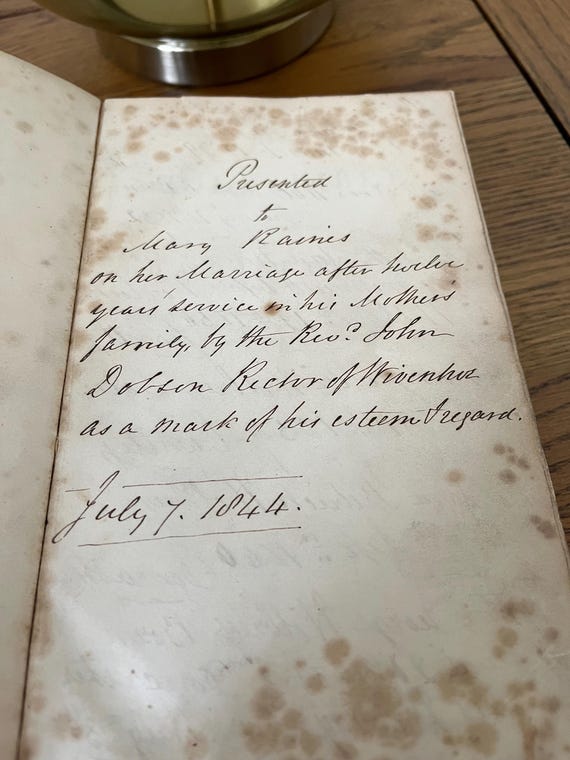 Presented
to
Mary Raines
on her Marriage after twelve
years' service in his Mother's
family, by the Revd. John
Dobson Rector of Wivenhoe
as a mark of his esteem & regard.
July 7. 1844.